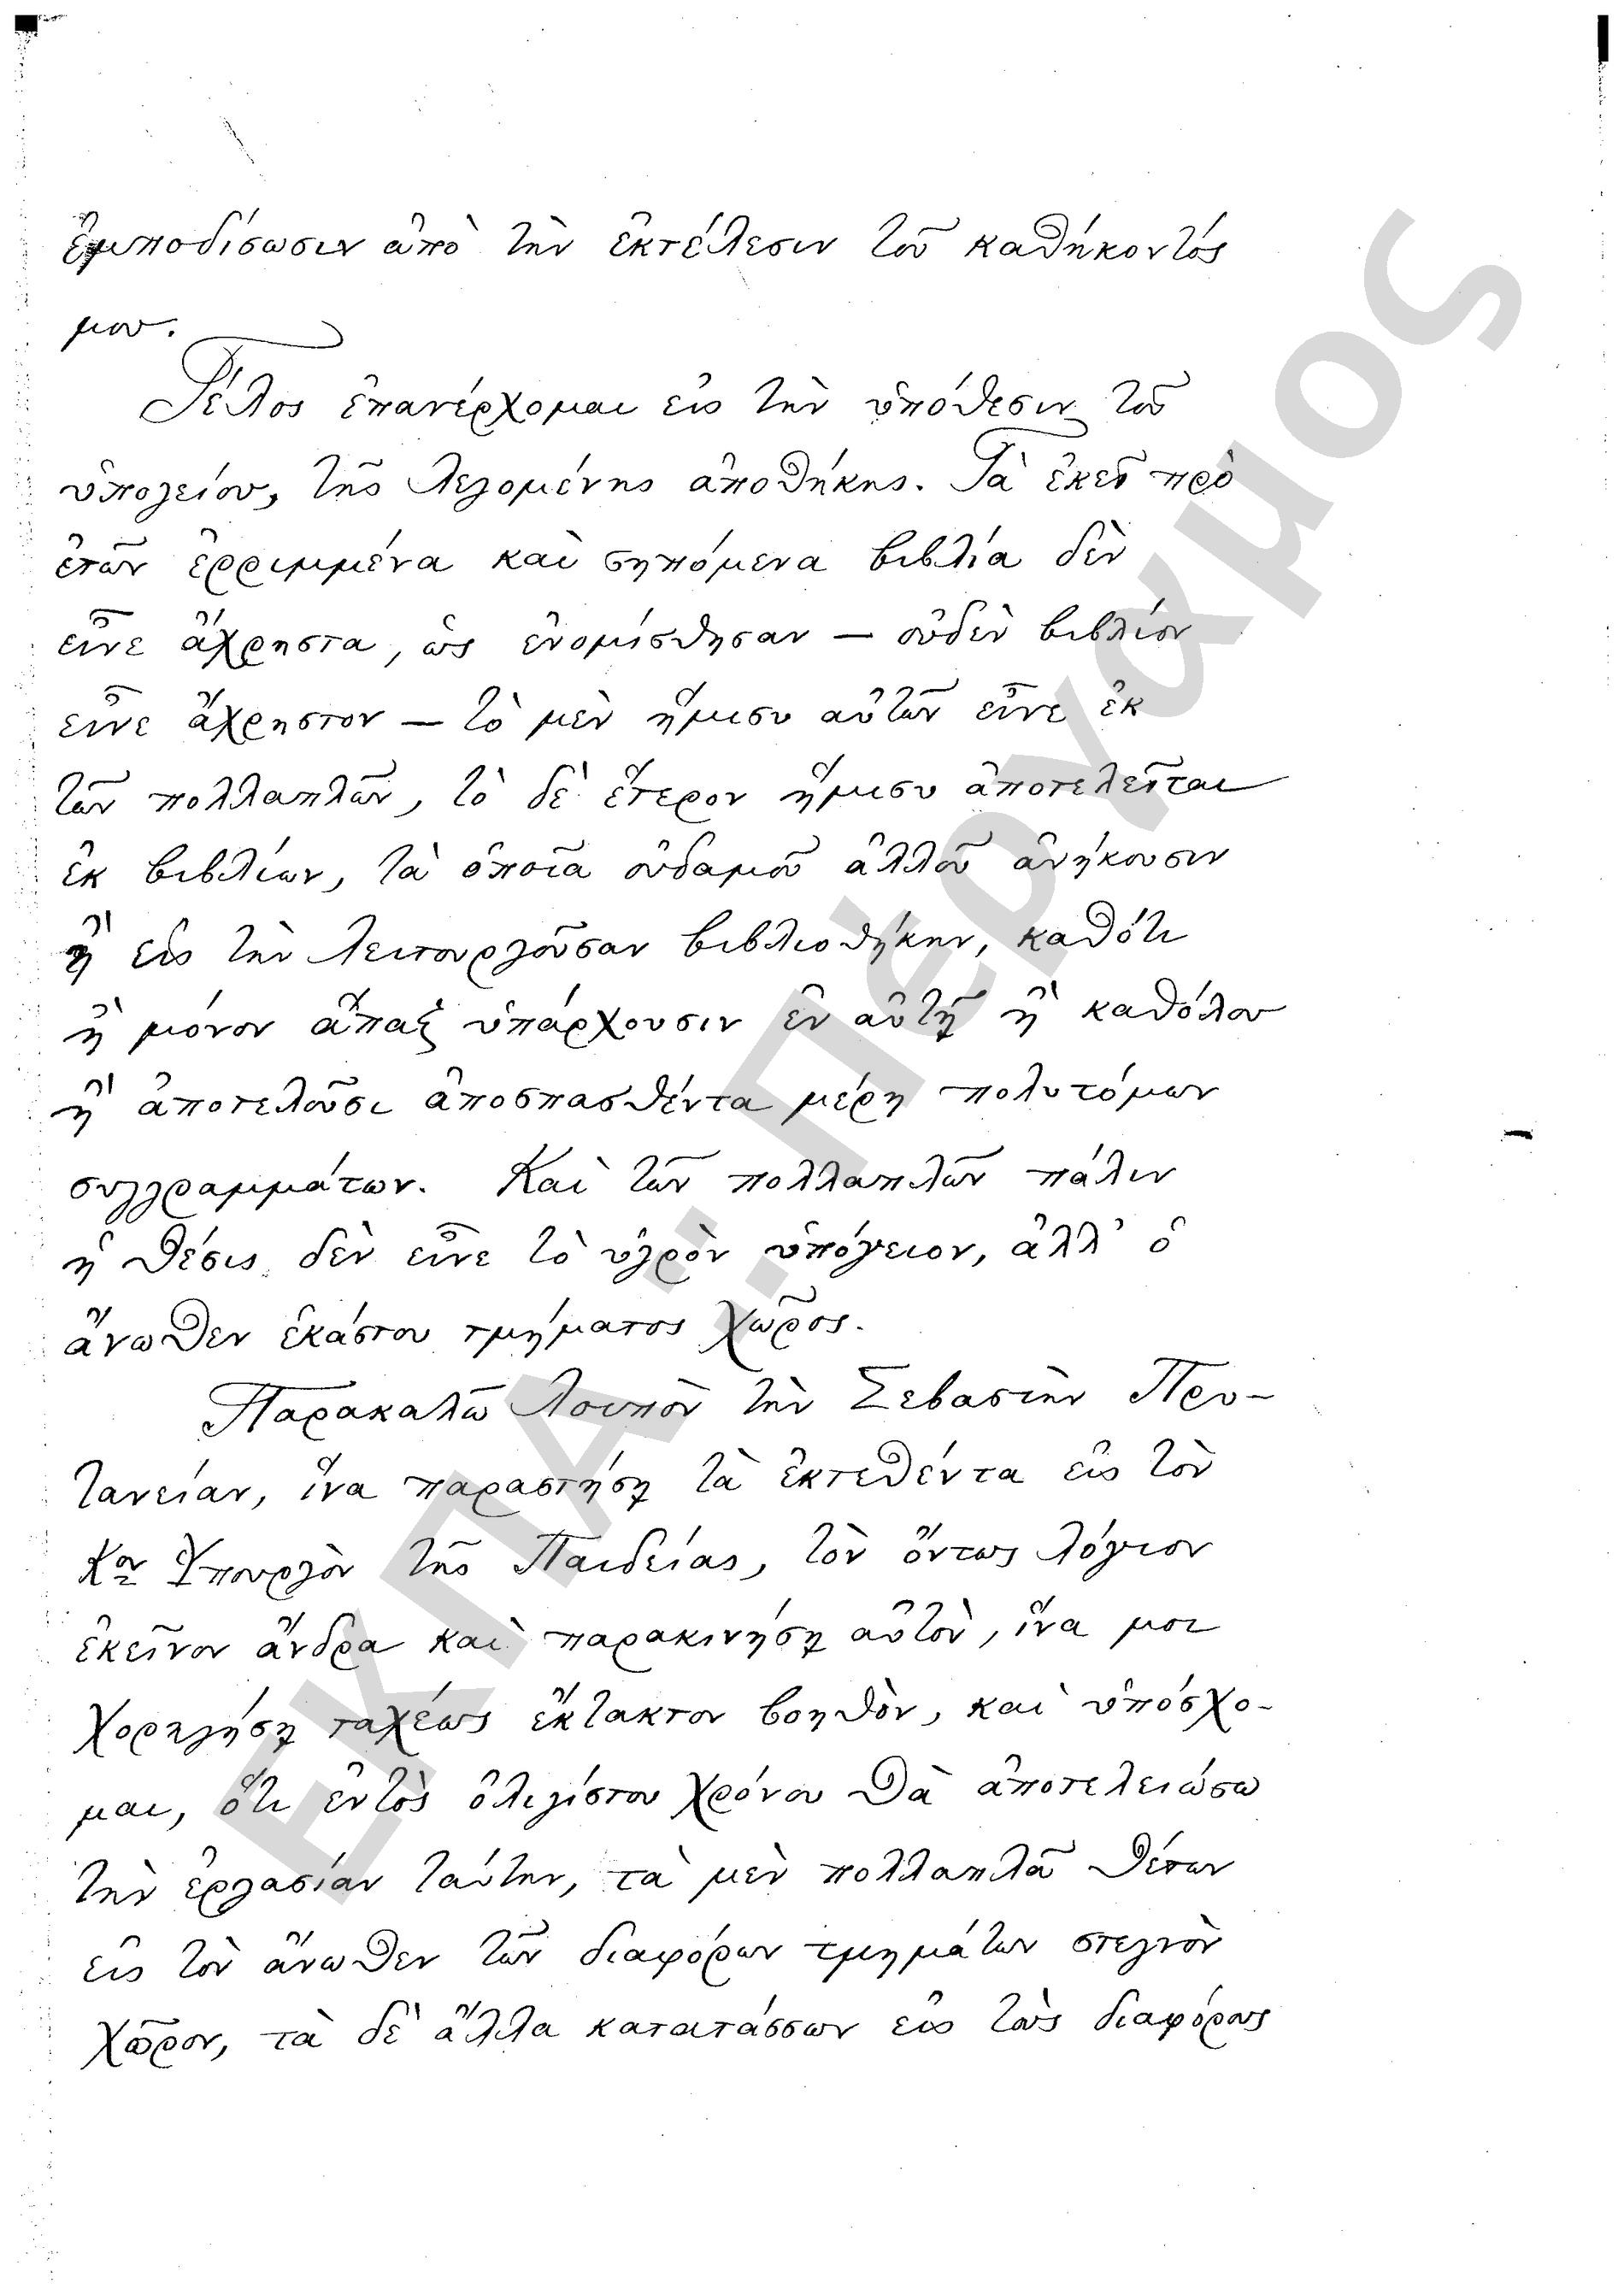 ἐμποδίσωσιν ἀπὸ τὴν ἐκτέλεσιν τοῦ καθήκοντός
μου.
Τέλος ἐπανέρχομαι εἰς τὴν ὑπόθεσιν τοῦ
ὑπογείου, τῆς λεγομένης ἀποθήκης. Τὰ ἐκεῖ πρὸ
ἐτῶν ἐρριμμένα καὶ σηπόμενα βιβλία δὲν
εἶνε ἄχρηστα, ὡς ἐνομίσθησαν — οὐδὲν βιβλίον
εἶνε ἄχρηστον — τὸ μὲν ἥμισυ αὐτῶν εἶνε ἐκ
τῶν πολλαπλῶν, τὸ δὲ ἕτερον ἥμισυ ἀποτελεῖται
ἐκ βιβλίων, τὰ ὁποῖα οὐδαμοῦ ἀλλοῦ ἀνήκουσιν
ἢ εἰς τὴν λειτουργοῦσαν βιβλιοθήκην, καθότι
ἢ μόνον ἅπαξ ὑπάρχουσιν ἐν αὐτῇ ἢ καθόλου
ἢ ἀποτελοῦσι ἀποσπασθέντα μέρη πολυτόμων
συγγραμμάτων. Καὶ τῶν πολλαπλῶν πάλιν
ἡ θέσις δὲν εἶνε τὸ ὑγρὸν ὑπόγειον, ἀλλ' ὁ
ἄνωθεν ἑκάστου τμήματος χῶρος.
Παρακαλῶ λοιπὸν τὴν Σεβαστὴν Πρυ-
τανείαν, ἵνα παραστήσῃ τὰ ἐκτεθέντα εἰς τὸν
Κον Ὑπουργὸν τῆς Παιδείας, τὸν ὄντως λόγιον
ἐκεῖνον ἄνδρα καὶ παρακινήσῃ αὐτὸν, ἵνα μοι
χορηγήσῃ ταχέως ἔκτακτον βοηθὸν, καὶ ὑπόσχο-
μαι, ὅτι ἐντὸς ὀλιγίστου χρόνου θὰ ἀποτελειώσω
τὴν ἐργασίαν ταύτην, τὰ μὲν πολλαπλᾶ θέτων
εἰς τὸν ἄνωθεν τῶν διαφόρων τμημάτων στεγνὸν
χῶρον, τὰ δὲ ἄλλα κατατάσσων εἰς τοὺς διαφόρους
ΕΚΠΑ :: Πέργαμος